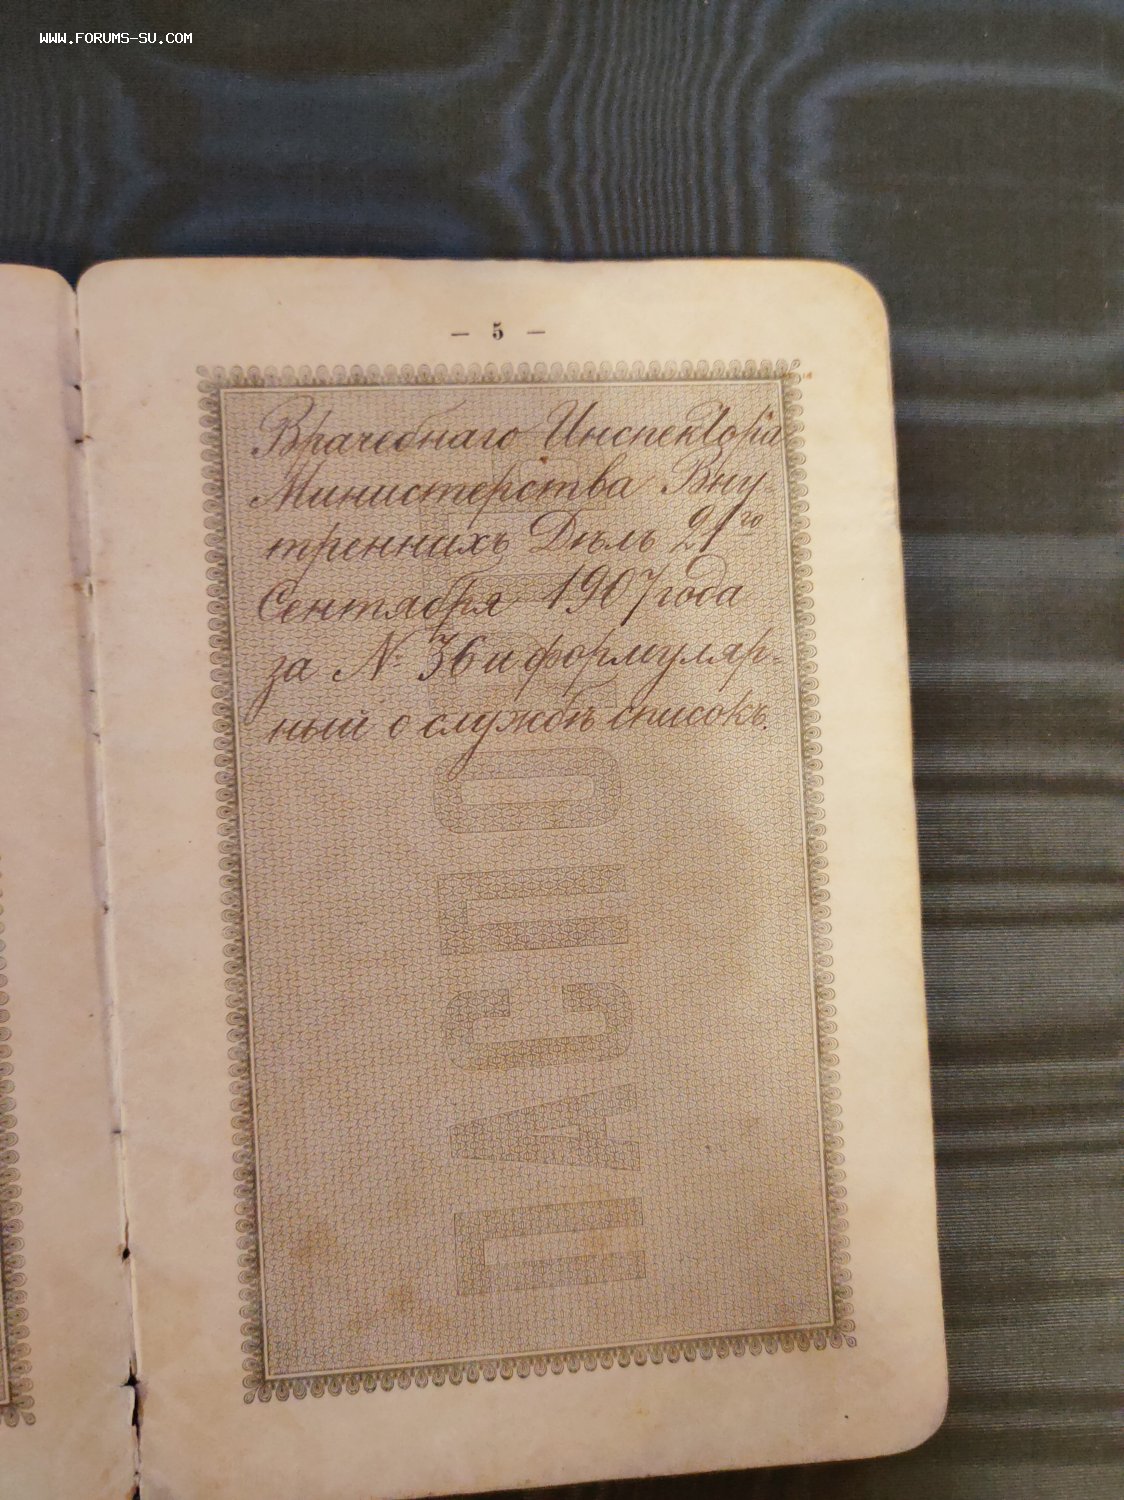 WWW.FORUMS-SU.COM
— 5 —
Врачебнаго Инспектора
Министерства Вну-
треннихъ Дѣлъ 21го
Сентября 1907 года
за № 36 и формуляр-
ный о службѣ списокъ.
ПАСПОРТЪ